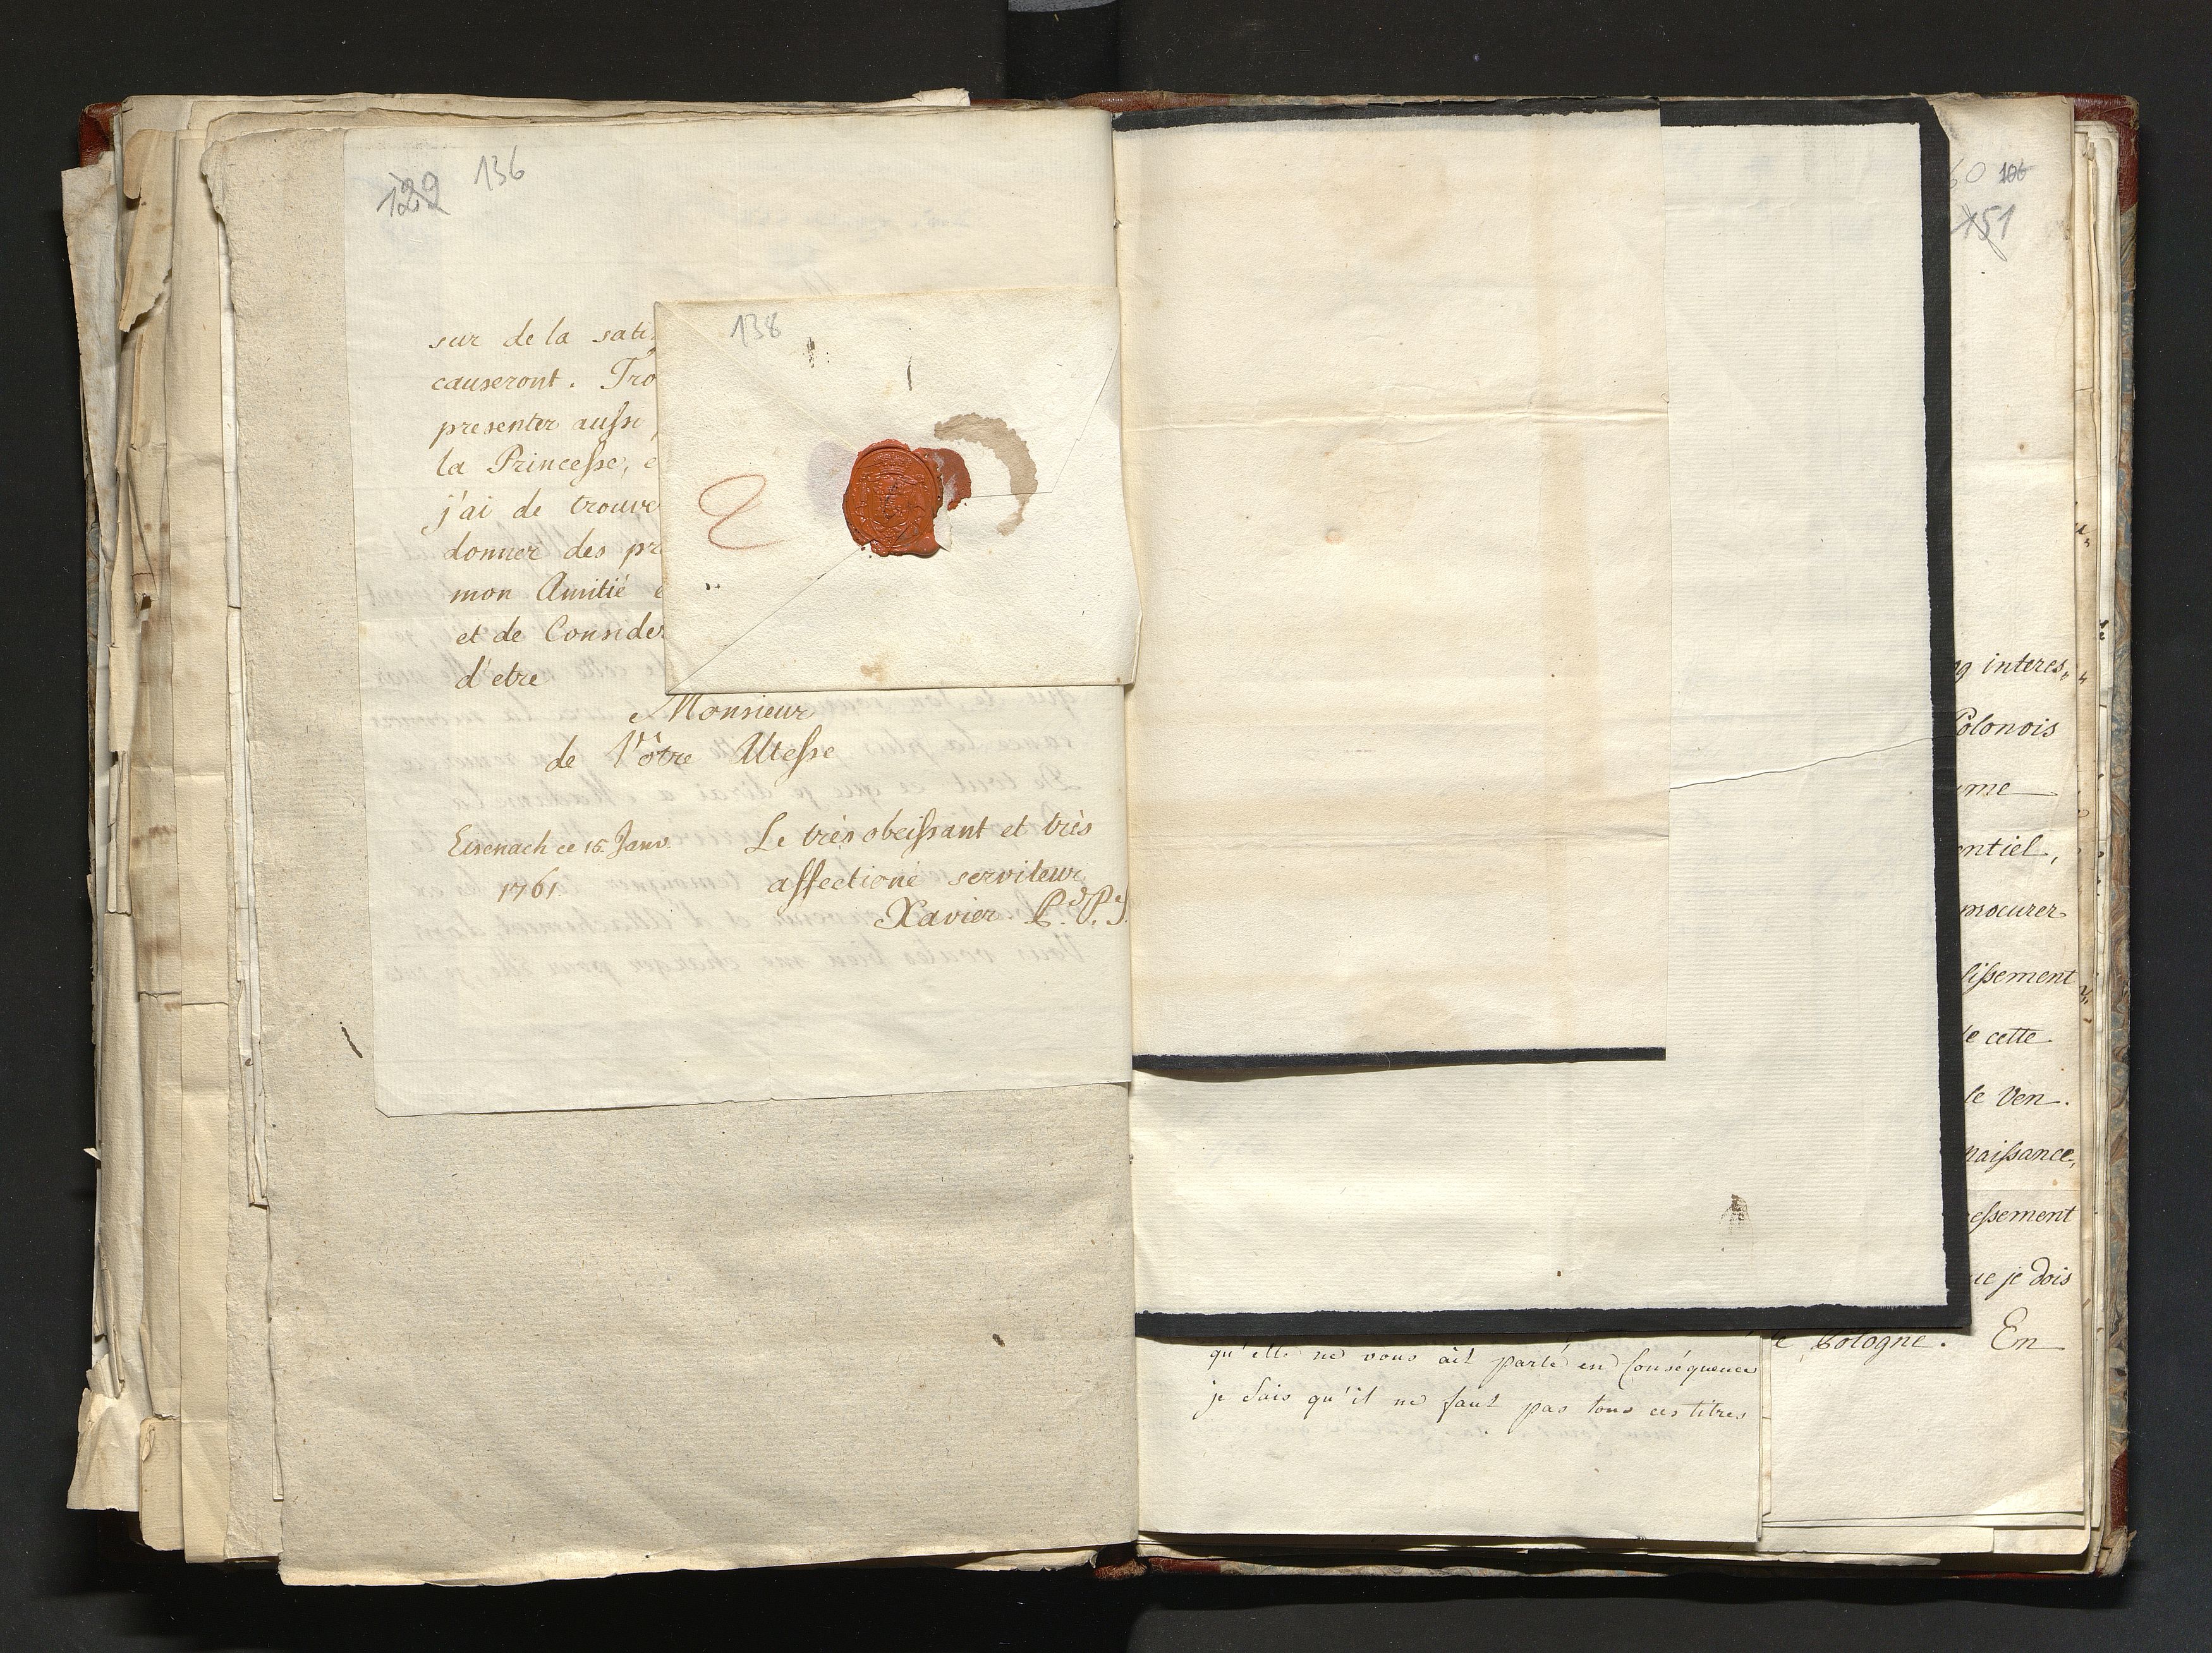 129 136
138
sur de la sati
causeront. Tro
presenter aussi
la Princesse, e
j'ai de trouve
donner des pr
mon Amitié e
et de Consider
d'etre
Monsieur
de Vôtre Altesse
Eisenach ce 15. Janv. Le très obeissant et très
1761. affectioné serviteur
Xavier P. d. P. e S.
2
60 106
151
interes
Polonois
me
entiel,
procurer
lissement
de cette
le Ven.
naissance,
essement
ue je dois
de Pologne. En
qu'elle ne vous ait parlé en Conséquence
je Sais qu'il ne faut pas tous ces titres